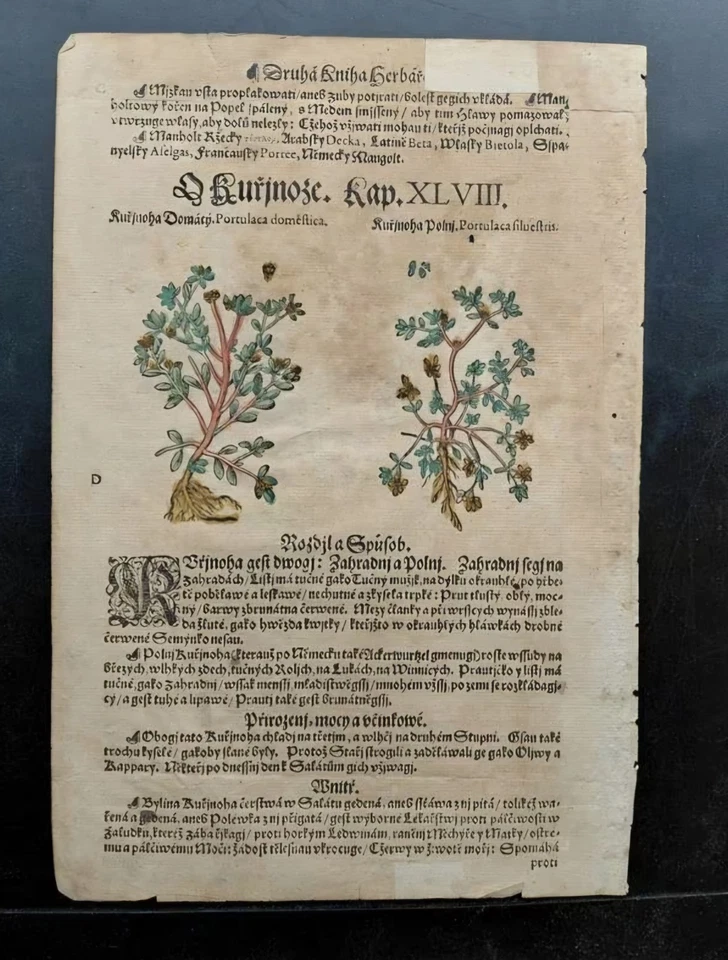 Druhá Kniha Herbáře
Mízkau vsta proplakowati/aneb Zuby potírati/bolest gegich vkládá. Man-
holtowý kořen na Popel spálený, s Medem smíssený/aby tim Hlawy pomazowal/
vtwrzuge wlasy, aby dolů nelezly: Čžehož vžíwati mohau ti/kteříž počínagí oplchati.
Manholt Ržecky, Arabsky Decka, Latině Beta, Wlasky Bietola, Sspa-
nyelsky Aselgas, Francausky Porree, Německy Mangolt.
O Kuřjnoze. Kap. XLVIII.
Kuřjnoha Domácý. Portulaca domestica.
Kuřjnoha Polnj. Portulaca siluestris.
D
Rozdjl a Spůsob.
KVřjnoha gest dwogj: Zahradnj a Polnj. Zahradnj segj na
Zahradách/Listj má tučné gako Tučný mužjk, na dýlku okrauhlé, po hřbe-
tě poběkawé a leskawé/nechutné a zkysela trpké: Prut tlustý, oblý, moc-
ný/barwy zbrunátna červené. Mezy články a při wrssých wynássj zble-
da žluté, gako hwězda kwjtky/kteřjžto w okrauhlých hlawkách drobné
čerwené Semýnko nesau.
Polnj Kuřjnoha (kterauž po Německu také Ackerwurtzel gmenugj) roste wssudy na
březých, wlhkých zdech, tučných Roljch, na Lukách, na Winnicých. Prautjčko y listj má
tučné, gako Zahradnj/wssak menssj, mladistwěgssj/mnohem vžssj, po zemi se rozkládagj-
cý/a gest tuhé a lipawé/Prautj také gest brunátněgssj.
Přirozenj, mocy a včinkowé.
Obogj tato Kuřjnoha chladj na třetjm, a wlhčj na druhém Stupni. Gsau také
trochu kyselé/gakoby slané byly. Protož Stařj strogili a zaděláwali ge gako Oliwy a
Kappary. Někteřj po dnessnj den k Salátům gich vžjwagj.
Wnitř.
Bylina Kuřjnoha čerstwá w Salátu gedená, aneb sstáwa z nj pitá/tolikéž wa-
řená a gedená, aneb Polewka z nj přigatá/gest wýborné Lékařstwj proti páčliwosti w
Žaludku, kteréž Žába řjkagj/proti horkým Ledwinám, raněnj Měchýře y Matky/ostré-
mu a páčliwému Moči: žádost tělesnau vkrocuge/Čžerwy w žiwotě mořj: Spomáhá
proti